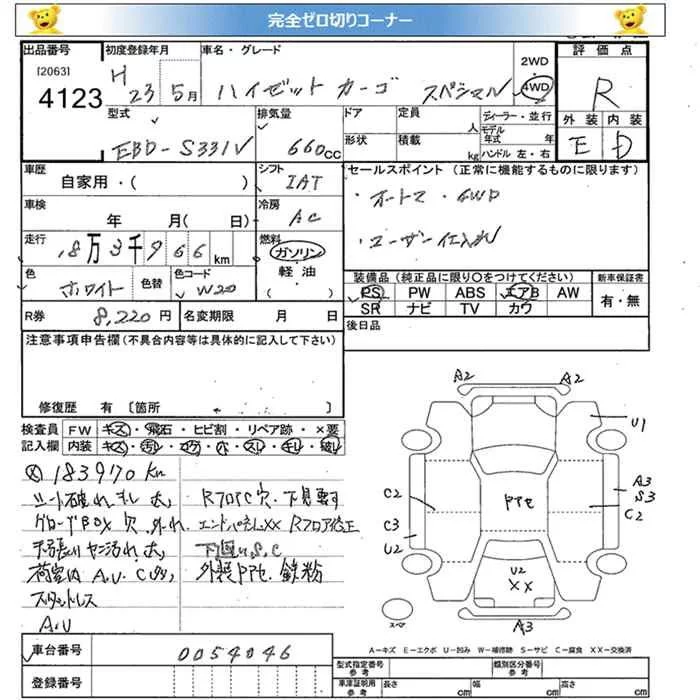 完全ゼロ切りコーナー
出品番号 初度登録年月 車名・グレード 評価点
[2063]
4123
H 23 5月 ハイゼット カーゴ スペシャル
2WD
4WD
R
型式 排気量 ドア 定員 人 ディーラー・並行 外装 内装
EBD-S331V 660cc
形状 積載 kg モデル年式 年式 ハンドル 左・右
E D
車歴 シフト セールスポイント (正常に機能するものに限ります)
自家用・( ) IAT
・オートマ・4WD
車検 冷房
年 月( 日) AC
・ユーザー仕入れ
走行 燃料
18万3千966km ガソリン
軽油
( )
色 色替 色コード
ホワイト W20
装備品(純正品に限り○をつけてください) 新車保証書
PS PW ABS エアB AW
SR ナビ TV カワ
有・無
R券 8,220円 名変期限 月 日
後日品
注意事項申告欄(不具合内容等は具体的に記入して下さい)
修復歴 有 〔箇所 〕
検査員 FW キズ・飛石・ヒビ割・リペア跡・×要
記入欄 内装 キズ・汚レ・コゲ・穴・スレ・キレ・破レ
183970km
シート破れ キレ 大
Rフロアc穴. 下見要す
グローブBOX 穴. 外れ.
エンドパネルXX Rフロア修正
天張り ヤニ汚れ 大
下廻りS.C
荷室内 A.U.C
外装Pтセ. 鉄粉
スタットレス
A.U
A2 A2
U1
A3
S3
C2
C2
C3
U2
U2
XX
A3
スペア
A-キズ E-エクボ U-凹み W-補修跡 S-サビ C-腐食 XX-交換済
車台番号 0054046
登録番号
型式指定番号 参考 類別区分番号 参考
車庫証明用 参考 長さ cm 幅 cm 高さ cm